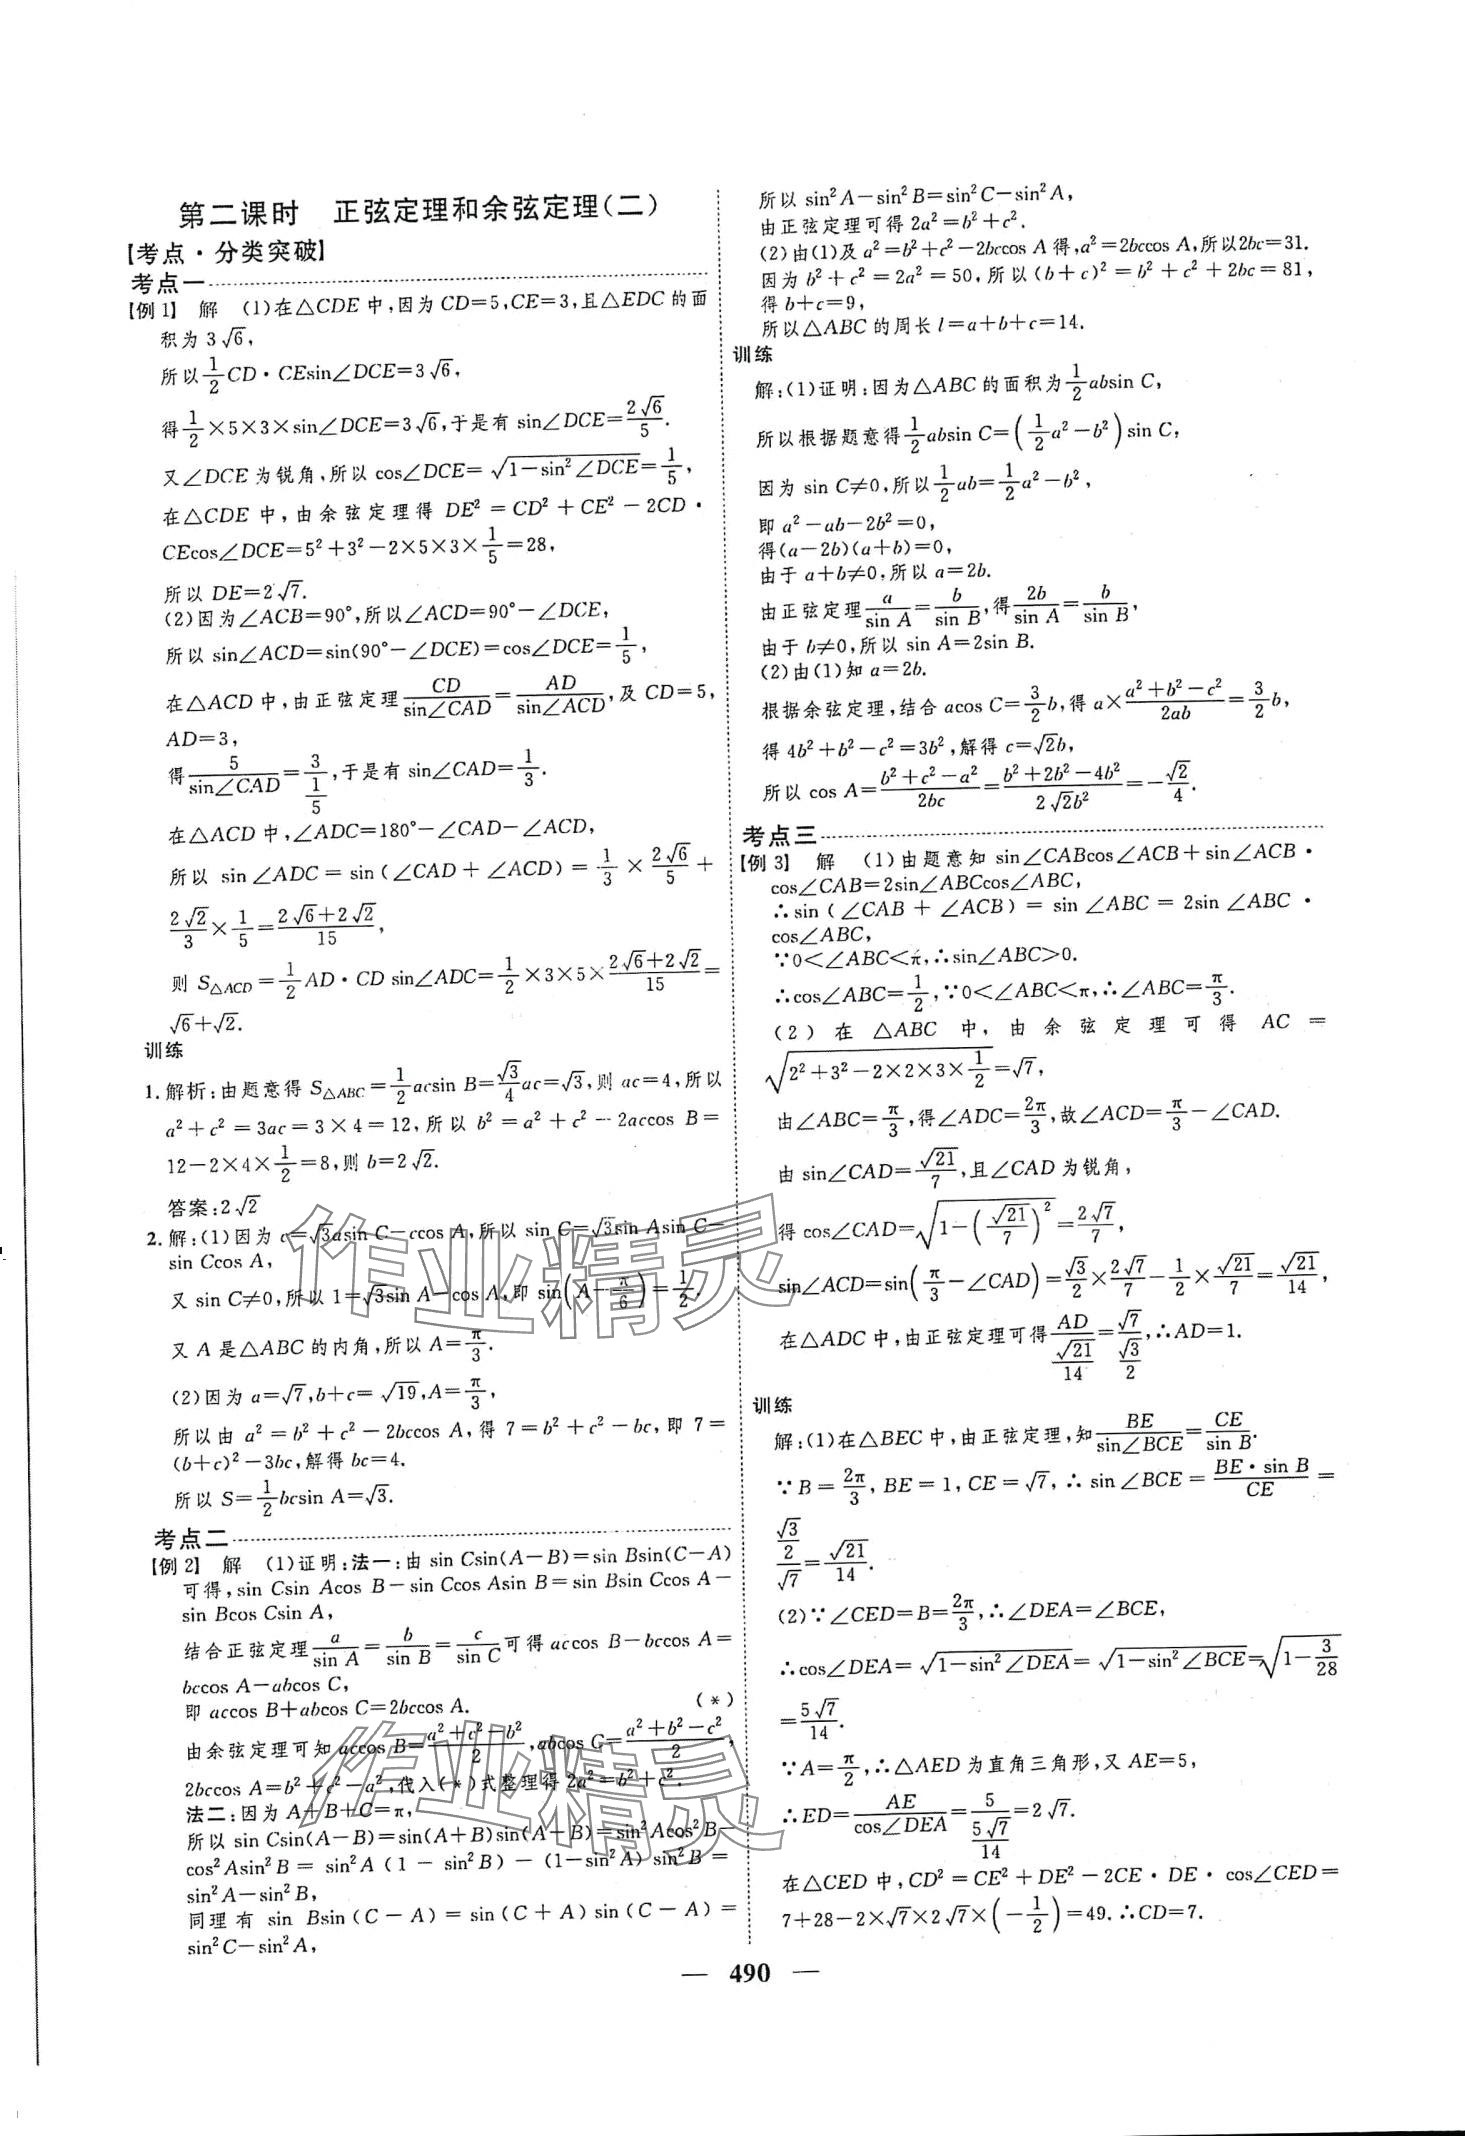 第二课时　正弦定理和余弦定理(二)
【考点·分类突破】
考点一
【例1】　解　(1)在△CDE中,因为CD=5,CE=3,且△EDC的面
积为3√6,
所以1/2CD·CEsin∠DCE=3√6,
得1/2×5×3×sin∠DCE=3√6,于是有sin∠DCE=2√6/5.
又∠DCE为锐角,所以cos∠DCE=√(1-sin²∠DCE)=1/5,
在△CDE中,由余弦定理得DE²=CD²+CE²-2CD·
CEcos∠DCE=5²+3²-2×5×3×1/5=28,
所以DE=2√7.
(2)因为∠ACB=90°,所以∠ACD=90°-∠DCE,
所以sin∠ACD=sin(90°-∠DCE)=cos∠DCE=1/5,
在△ACD中,由正弦定理CD/sin∠CAD=AD/sin∠ACD,及CD=5,
AD=3,
得5/sin∠CAD=3/(1/5),于是有sin∠CAD=1/3.
在△ACD中,∠ADC=180°-∠CAD-∠ACD,
所以sin∠ADC=sin(∠CAD+∠ACD)=1/3×2√6/5+
2√2/3×1/5=(2√6+2√2)/15,
则S△ACD=1/2AD·CDsin∠ADC=1/2×3×5×(2√6+2√2)/15=
√6+√2.
训练
1.解析:由题意得S△ABC=1/2acsin B=√3/4ac=√3,则ac=4,所以
a²+c²=3ac=3×4=12,所以b²=a²+c²-2accos B=
12-2×4×1/2=8,则b=2√2.
答案:2√2
2.解:(1)因为c=√3asin C-ccos A,所以sin C=√3sin Asin C-
sin Ccos A,
又sin C≠0,所以1=√3sin A-cos A,即sin(A-π/6)=1/2.
又A是△ABC的内角,所以A=π/3.
(2)因为a=√7,b+c=√19,A=π/3,
所以由a²=b²+c²-2bccos A,得7=b²+c²-bc,即7=
(b+c)²-3bc,解得bc=4.
所以S=1/2bcsin A=√3.
考点二
【例2】　解　(1)证明:法一:由sin Csin(A-B)=sin Bsin(C-A)
可得,sin Csin Acos B-sin Ccos Asin B=sin Bsin Ccos A-
sin Bcos Csin A,
结合正弦定理a/sin A=b/sin B=c/sin C可得accos B-bccos A=
bccos A-abcos C,
即accos B+abcos C=2bccos A.　(*)
由余弦定理可知accos B=(a²+c²-b²)/2,abcos C=(a²+b²-c²)/2,
2bccos A=b²+c²-a²,代入(*)式整理得2a²=b²+c².
法二:因为A+B+C=π,
所以sin Csin(A-B)=sin(A+B)sin(A-B)=sin²Acos²B-
cos²Asin²B=sin²A(1-sin²B)-(1-sin²A)sin²B=
sin²A-sin²B,
同理有sin Bsin(C-A)=sin(C+A)sin(C-A)=
sin²C-sin²A,
所以sin²A-sin²B=sin²C-sin²A,
由正弦定理可得2a²=b²+c².
(2)由(1)及a²=b²+c²-2bccos A得,a²=2bccos A,所以2bc=31.
因为b²+c²=2a²=50,所以(b+c)²=b²+c²+2bc=81,
得b+c=9,
所以△ABC的周长l=a+b+c=14.
训练
解:(1)证明:因为△ABC的面积为1/2absin C,
所以根据题意得1/2absin C=(1/2a²-b²)sin C,
因为sin C≠0,所以1/2ab=1/2a²-b²,
即a²-ab-2b²=0,
得(a-2b)(a+b)=0,
由于a+b≠0,所以a=2b.
由正弦定理a/sin A=b/sin B,得2b/sin A=b/sin B,
由于b≠0,所以sin A=2sin B.
(2)由(1)知a=2b.
根据余弦定理,结合acos C=3/2b,得a×(a²+b²-c²)/2ab=3/2b,
得4b²+b²-c²=3b²,解得c=√2b,
所以cos A=(b²+c²-a²)/2bc=(b²+2b²-4b²)/2√2b²=-√2/4.
考点三
【例3】　解　(1)由题意知sin∠CABcos∠ACB+sin∠ACB·
cos∠CAB=2sin∠ABCcos∠ABC,
∴sin(∠CAB+∠ACB)=sin∠ABC=2sin∠ABC·
cos∠ABC,
∵0<∠ABC<π,∴sin∠ABC>0.
∴cos∠ABC=1/2,∵0<∠ABC<π,∴∠ABC=π/3.
(2)在△ABC中,由余弦定理可得AC=
√(2²+3²-2×2×3×1/2)=√7,
由∠ABC=π/3,得∠ADC=2π/3,故∠ACD=π/3-∠CAD.
由sin∠CAD=√21/7,且∠CAD为锐角,
得cos∠CAD=√(1-(√21/7)²)=2√7/7,
sin∠ACD=sin(π/3-∠CAD)=√3/2×2√7/7-1/2×√21/7=√21/14,
在△ADC中,由正弦定理可得AD/(√21/14)=√7/(√3/2),∴AD=1.
训练
解:(1)在△BEC中,由正弦定理,知BE/sin∠BCE=CE/sin B.
∵B=2π/3,BE=1,CE=√7,∴sin∠BCE=BE·sin B/CE=
(√3/2)/√7=√21/14.
(2)∵∠CED=B=2π/3,∴∠DEA=∠BCE,
∴cos∠DEA=√(1-sin²∠DEA)=√(1-sin²∠BCE)=√(1-3/28)
=5√7/14.
∵A=π/2,∴△AED为直角三角形,又AE=5,
∴ED=AE/cos∠DEA=5/(5√7/14)=2√7.
在△CED中,CD²=CE²+DE²-2CE·DE·cos∠CED=
7+28-2×√7×2√7×(-1/2)=49.∴CD=7.
作业精灵
作业精灵
— 490 —